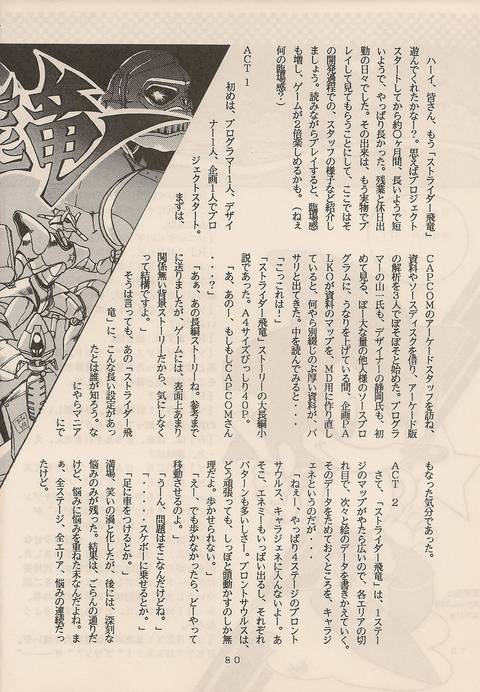 飛竜
ハーイ、皆さん、もう「ストライダー飛竜」
遊んでくれたかなー?。思えばプロジェクト
スタートしてから約〇ヶ月間、長いようで短
いようで、やっぱり長かった。残業と休日出
勤の日々でした。その出来は、もう実物でプ
レイして見てもらうことにして、ここではそ
の開発過程での、スタッフの様子など紹介し
ましょう。読みながらプレイすると、臨場感
も増し、ゲームが2倍楽しめるかも。(ねぇ
何の臨場感?)
ACT 1
初めは、プログラマー1人、デザイ
ナー1人、企画1人でプロ
ジェクトスタート。
まずは、
CAPCOMのアーケードスタッフを訪ね、
資料やソースディスクを借り、アーケード版
の解析を3人でぼそぼそと始めた。プログラ
マーの山一氏も、デザイナーの静岡氏も、初
めて見る、ぼー大な量の他人様のソースプロ
グラムに、うなりを上げている間、企画PA
LKOが資料のマップを、MD用に作り直し
ていると、何やら別綴じのぶ厚い資料が、バ
サリと出てきた。中を読んでみると・・・
「こっこれは!」
「ストライダー飛竜」ストーリーの大長編小
説であった。A4サイズびっしり40P。
「あ、あのー、もしもしCAPCOMさん
・・・?」
「あぁ、あの長編ストーリーね。参考まで
に送りましたが、ゲームには、表面上あまり
関係無い背景ストーリーだから、気にしなく
って結構ですよ。」
そうは言っても、あの「ストライダー飛
竜」に、こんな長い設定があっ
たとは誰が知ろう。な
にやらマニア
にで
もなった気分であった。
ACT 2
さて、「ストライダー飛竜」は、1ステー
ジのマップがやたら広いので、各エリアの切
れ目で、次々と絵のデータを書きかえていく。
そのデータをためておくところを、キャラジ
ェネというのだが・・・・
「ねぇー、やっぱり4ステージのブロント
サウルス、キャラジェネに入んないよー。あ
そこ、エネミーもいっぱい出るし、それぞれ
パターンも多いしさー。ブロントサウルスは、
どう頑張っても、しっぽと頭動かすのしか無
理だよ。歩かせられない。」
「えー、でも歩かなかったら、どーやって
移動させるのよ。」
「うーん、問題はそこなんだけどね。」
「・・・・・スケボーに乗せるとか。」
「足に車をつけるとか。」
満場、笑いの渦と化したが、後には、深刻な
悩みのみが残った。結果は、ごらんの通りだ
けど、悩みに悩みを重ねた末なんだよね。ま
ぁ、全ステージ、全エリア、悩みの連続だっ
たけど。
80